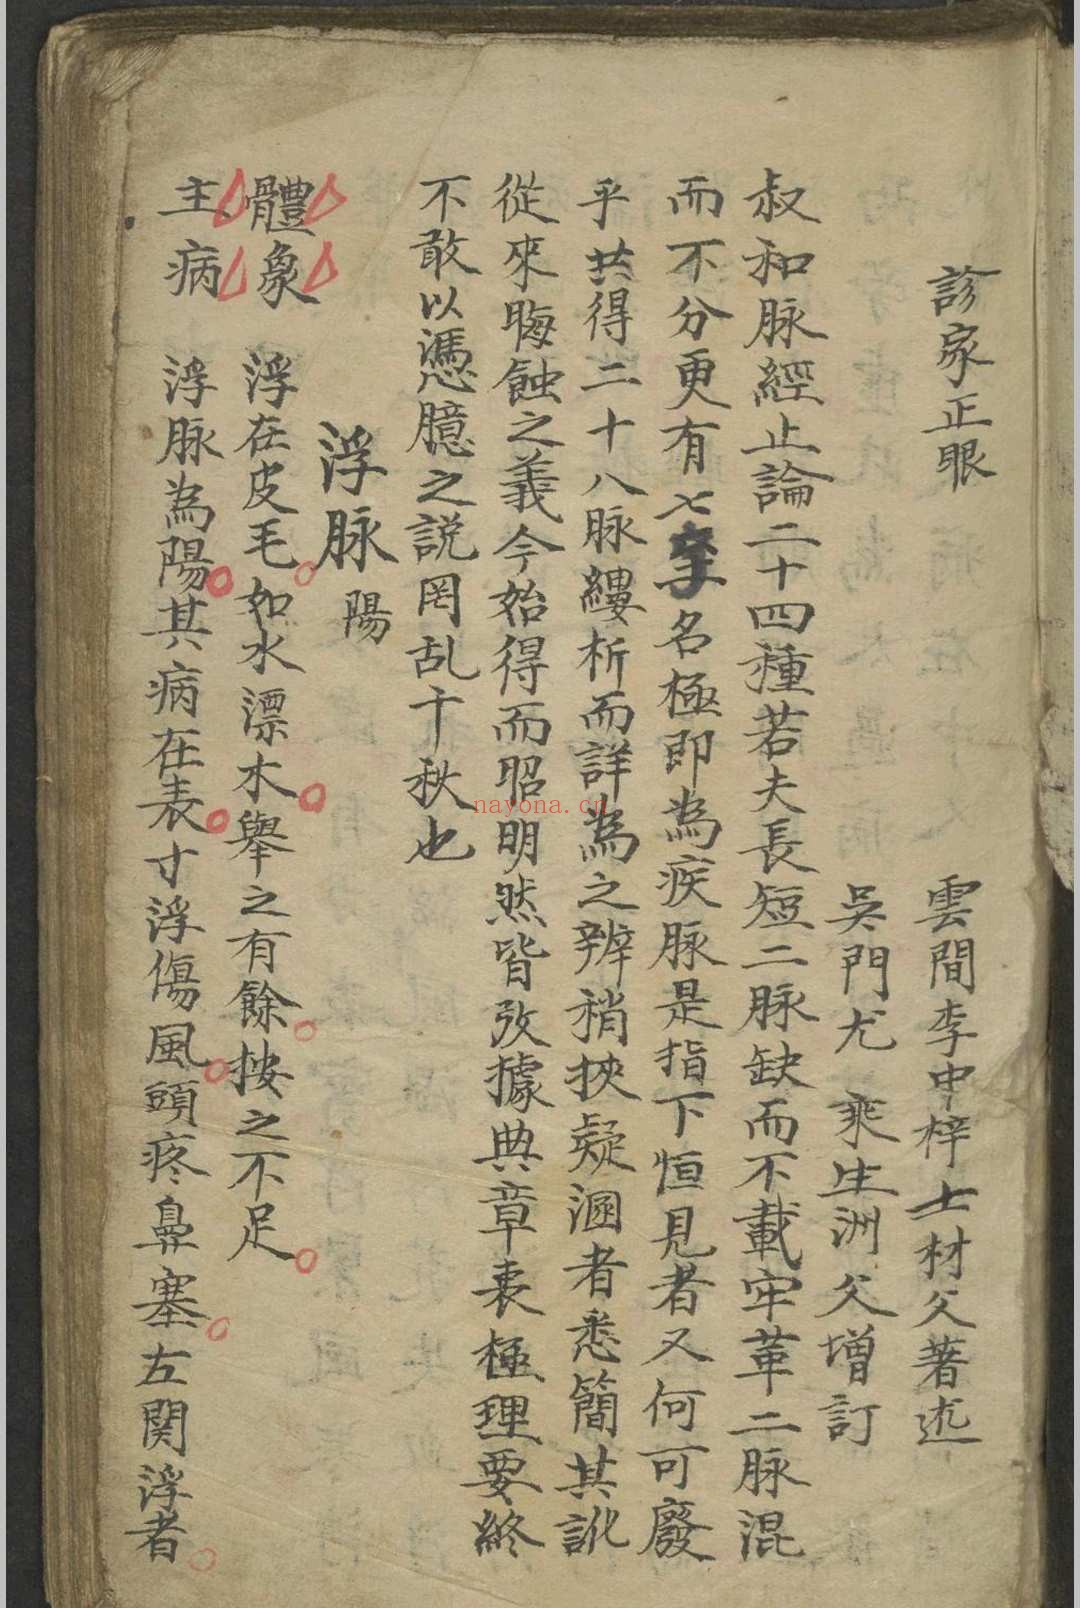 診家正眼
雲間李中梓士材父著述
吳門尤乘生洲父增訂
叔和脉經止論二十四種若夫長短二脉缺而不載牢革二脉混
而不分更有七字名極即為疾脉是指下恒見者又何可廢
乎共得二十八脉縷析而詳為之辨稍挾疑溷者悉簡其訛
從來晦蝕之義今始得而昭明然皆攷據典章衷極理要終
不敢以慿臆之説罔乱千秋也
浮脉陽
體象 浮在皮毛如水漂木舉之有餘按之不足
主病 浮脉為陽其病在表寸浮傷風頭疼鼻塞左関浮者
nayona.cn